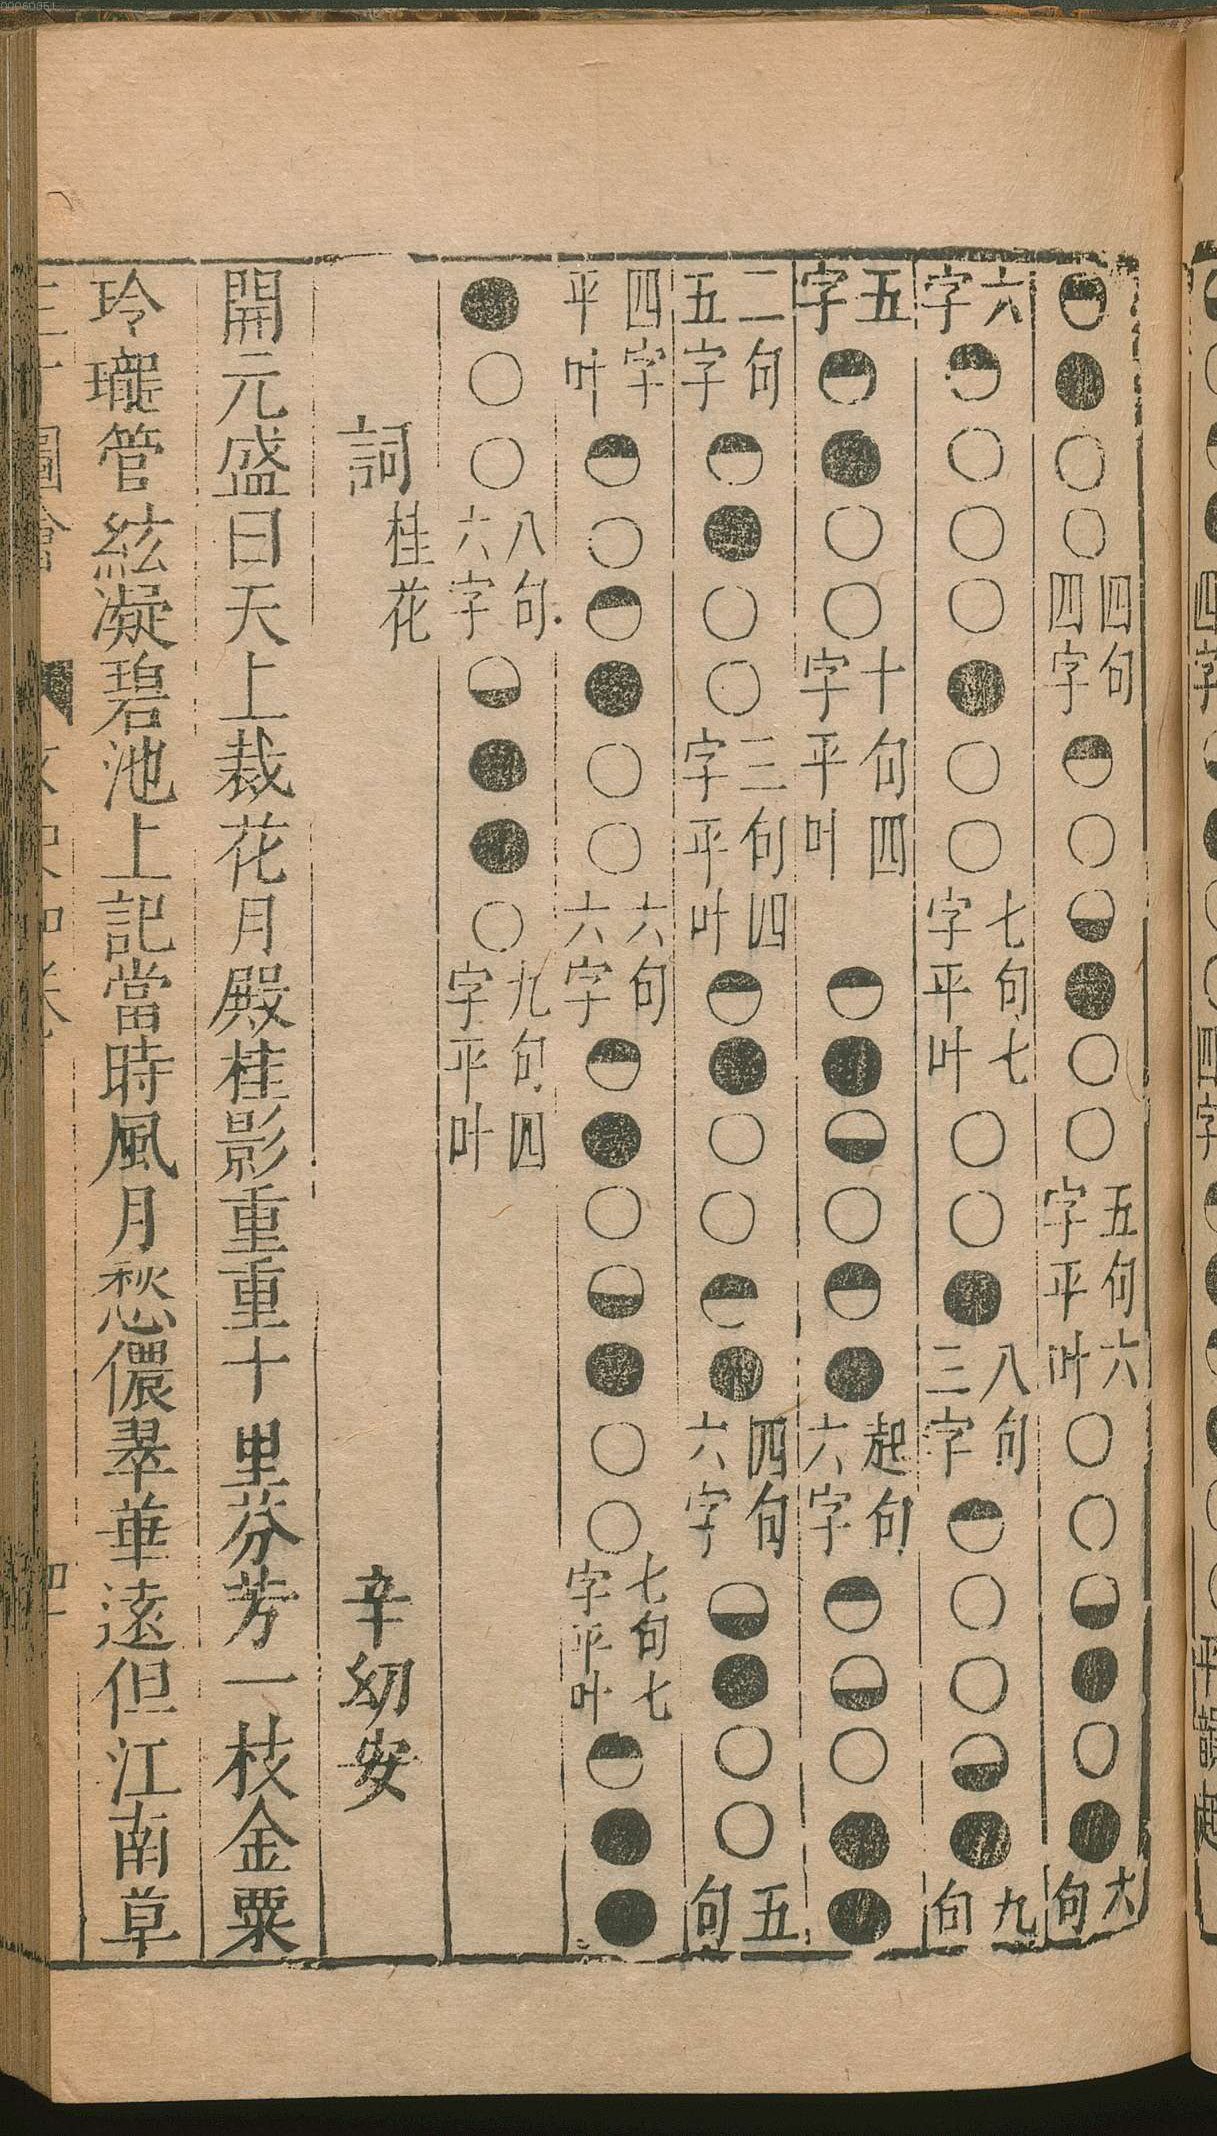 四句四字 五句六字平叶 六句
六字 七句七字平叶 八句三字 九句
五字 十句四字平叶 起句六字
二句五字 三句四字平叶 四句六字 五句
四字平叶 六句六字 七句七字平叶
八句六字 九句四字平叶
詞 桂花 辛幼安
開元盛日天上裁花月殿桂影重重十里芬芳一枝金粟
玲瓏管絃凝碧池上記當時風月愁儂翠華遠但江南草